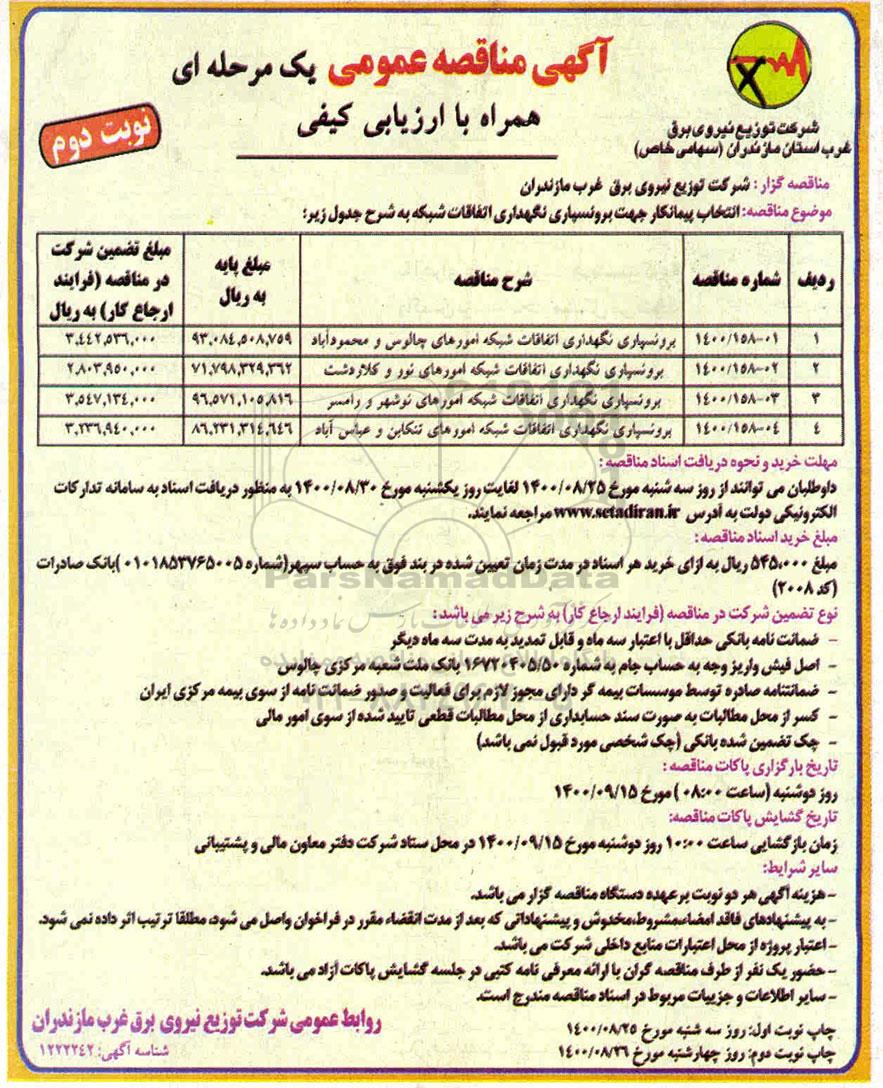 آگهی مناقصه عمومی یک مرحله ای
همراه با ارزیابی کیفی
نوبت دوم
شرکت توزیع نیروی برق
غرب استان مازندران (سهامی خاص)
مناقصه گزار : شرکت توزیع نیروی برق غرب مازندران
موضوع مناقصه: انتخاب پیمانکار جهت برونسپاری نگهداری اتفاقات شبکه به شرح جدول زیر:
ردیف شماره مناقصه شرح مناقصه مبلغ پایه به ریال مبلغ تضمین شرکت در مناقصه (فرایند ارجاع کار) به ریال
۱ ۱۴۰۰/۱۵۸-۰۱ برونسپاری نگهداری اتفاقات شبکه امورهای چالوس و محمودآباد ۹۳,۰۸۴,۵۰۸,۷۵۹ ۳,۴۴۲,۵۳۶,۰۰۰
۲ ۱۴۰۰/۱۵۸-۰۲ برونسپاری نگهداری اتفاقات شبکه امورهای نور و کلاردشت ۷۱,۷۹۸,۳۲۹,۳۶۲ ۲,۸۰۳,۹۵۰,۰۰۰
۳ ۱۴۰۰/۱۵۸-۰۳ برونسپاری نگهداری اتفاقات شبکه امورهای نوشهر و رامسر ۹۶,۵۷۱,۱۰۵,۸۱۶ ۳,۵۴۷,۱۳۴,۰۰۰
۴ ۱۴۰۰/۱۵۸-۰۴ برونسپاری نگهداری اتفاقات شبکه امورهای تنکابن و عباس آباد ۸۶,۲۳۱,۳۱۴,۶۴۶ ۳,۲۳۶,۹۴۰,۰۰۰
مهلت خرید و نحوه دریافت اسناد مناقصه :
داوطلبان می توانند از روز سه شنبه مورخ ۱۴۰۰/۰۸/۲۵ لغایت روز یکشنبه مورخ ۱۴۰۰/۰۸/۳۰ به منظور دریافت اسناد به سامانه تدارکات
الکترونیکی دولت به آدرس www.setadiran.ir مراجعه نمایند.
مبلغ خرید اسناد مناقصه :
مبلغ ۵۴۵,۰۰۰ ریال به ازای خرید هر اسناد در مدت زمان تعیین شده در بند فوق به حساب سپهر(شماره ۰۱۰۱۸۵۳۷۶۵۰۰۵ )بانک صادرات
(کد ۲۰۰۸)
ParsNamadData
نوع تضمین شرکت در مناقصه (فرایند ارجاع کار) به شرح زیر می باشد :
- ضمانت نامه بانکی حداقل با اعتبار سه ماه و قابل تمدید به مدت سه ماه دیگر
- اصل فیش واریز وجه به حساب جام به شماره ۱۶۷۲۰۴۰۵/۵۰ بانک ملت شعبه مرکزی چالوس
- ضمانتنامه صادره توسط موسسات بیمه گر دارای مجوز لازم برای فعالیت و صدور ضمانت نامه از سوی بیمه مرکزی ایران
- کسر از محل مطالبات به صورت سند حسابداری از محل مطالبات قطعی تایید شده از سوی امور مالی
- چک تضمین شده بانکی (چک شخصی مورد قبول نمی باشد)
تاریخ بارگزاری پاکات مناقصه :
روز دوشنبه (ساعت ۰۸:۰۰ ) مورخ ۱۴۰۰/۰۹/۱۵
تاریخ گشایش پاکات مناقصه:
زمان بازگشایی ساعت ۱۰:۰۰ روز دوشنبه مورخ ۱۴۰۰/۰۹/۱۵ در محل ستاد شرکت دفتر معاون مالی و پشتیبانی
سایر شرایط:
- هزینه آگهی هر دو نوبت بر عهده دستگاه مناقصه گزار می باشد.
- به پیشنهادهای فاقد امضاء،مشروط،مخدوش و پیشنهاداتی که بعد از مدت انقضاء مقرر در فراخوان واصل می شود، مطلقا ترتیب اثر داده نمی شود.
- اعتبار پروژه از محل اعتبارات منابع داخلی شرکت می باشد.
- حضور یک نفر از طرف مناقصه گران با ارائه معرفی نامه کتبی در جلسه گشایش پاکات آزاد می باشد.
- سایر اطلاعات و جزییات مربوط در اسناد مناقصه مندرج است.
چاپ نوبت اول: روز سه شنبه مورخ ۱۴۰۰/۰۸/۲۵
چاپ نوبت دوم: روز چهارشنبه مورخ ۱۴۰۰/۰۸/۲۶
روابط عمومی شرکت توزیع نیروی برق غرب مازندران
شناسه آگهی: ۱۲۲۲۲۴۲